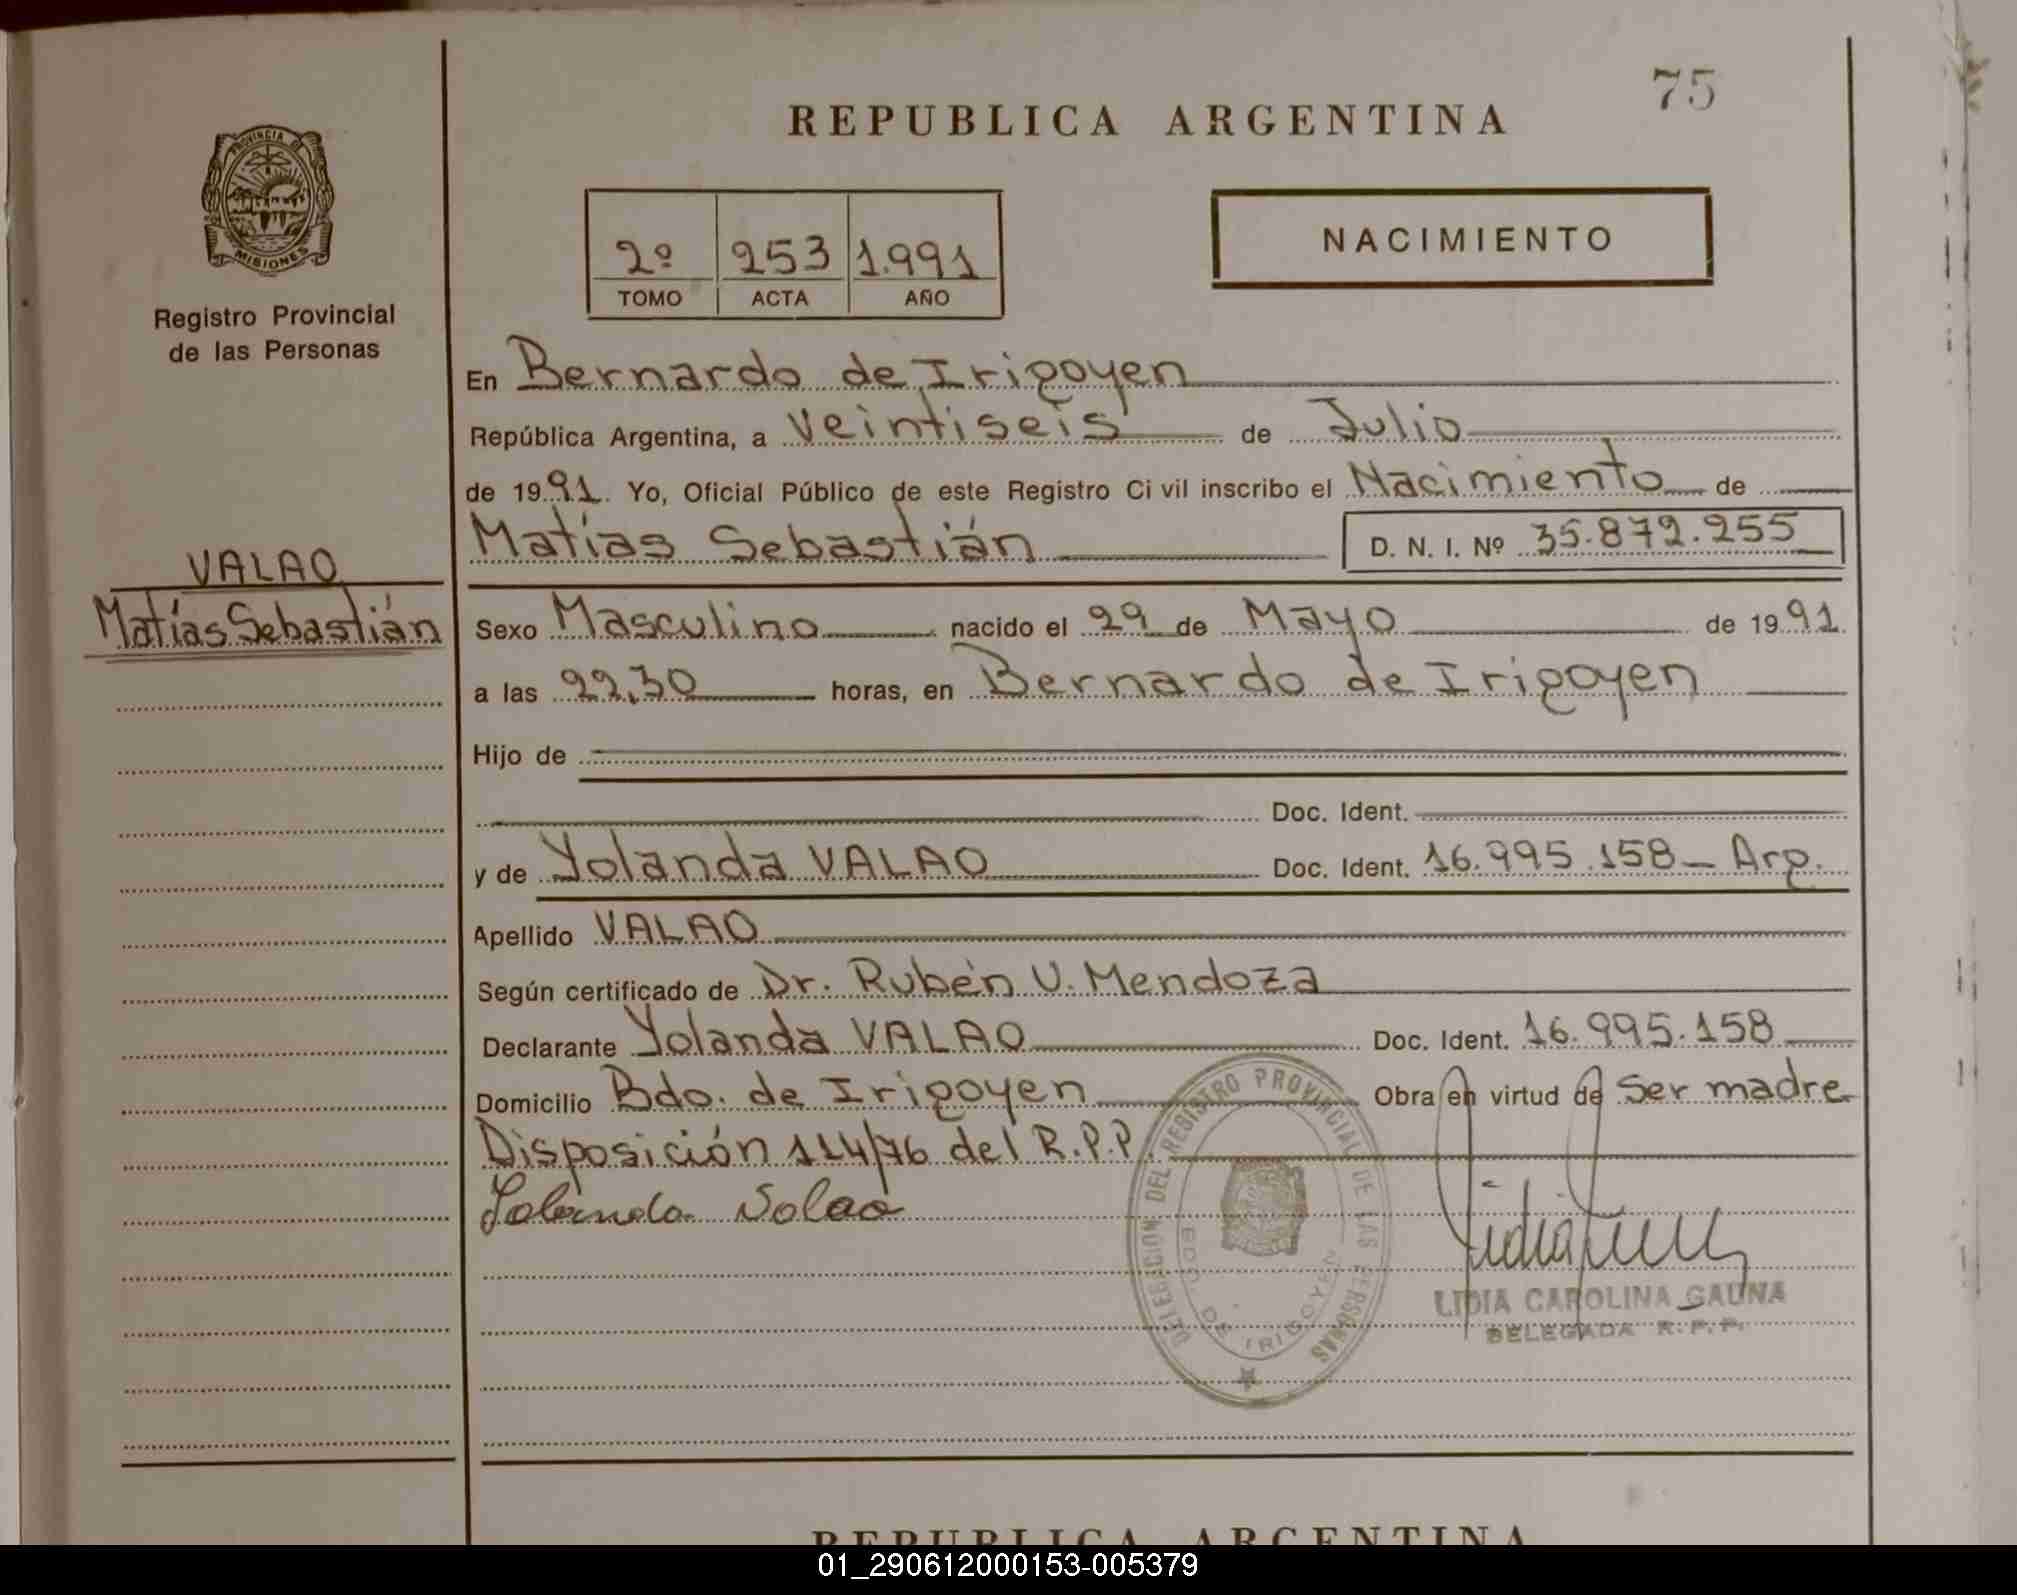 75
REPUBLICA ARGENTINA
PROVINCIA DE
MISIONES
Registro Provincial
de las Personas
2º 253 1.991
TOMO ACTA AÑO
NACIMIENTO
En Bernardo de Irigoyen
República Argentina, a Veintiseis de Julio
de 1991. Yo, Oficial Público de este Registro Ci vil inscribo el Nacimiento de
Matías Sebastián D. N. I. Nº 35.872.255
VALAO
Matías Sebastián
Sexo Masculino nacido el 29 de Mayo de 1991.
a las 22,30 horas, en Bernardo de Irigoyen
Hijo de
Doc. Ident.
y de Yolanda VALAO Doc. Ident. 16.995.158 - Arg.
Apellido VALAO
Según certificado de Dr. Rubén U. Mendoza
Declarante Yolanda VALAO Doc. Ident. 16.995.158
Domicilio Bdo. de Irigoyen Obra en virtud de Ser madre
Disposición 114/76 del R.P.P.
DELEGACION DEL REGISTRO PROVINCIAL DE LAS PERSONAS
BDO. DE IRIGOYEN
LIDIA CAROLINA GAUNA
DELEGADA R.P.P.
REPUBLICA ARGENTINA
01_290612000153-005379